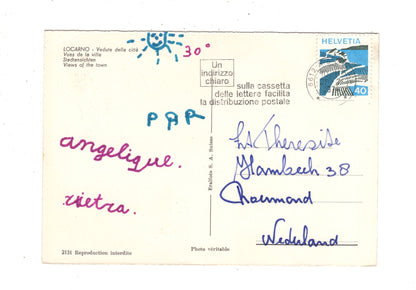 LOCARNO - Vedute della città
Vues de la ville
Stadtansichten
Views of the town
30°
HELVETIA
40
Un
indirizzo
chiaro
sulla cassetta
delle lettere facilita
la distribuzione postale
PAR
angelique.
rietra.
St Theresite
Roermond
Nederland
2131 Reproduction interdite
Photo véritable